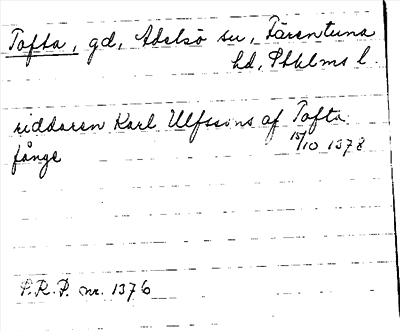 Tofta, gd, Adelsö sn, Färentuna
hd, Sthlms l.
riddaren Karl Ulfssons af Tofta
fånge 15/10 1378
P.R.P. nr. 1376